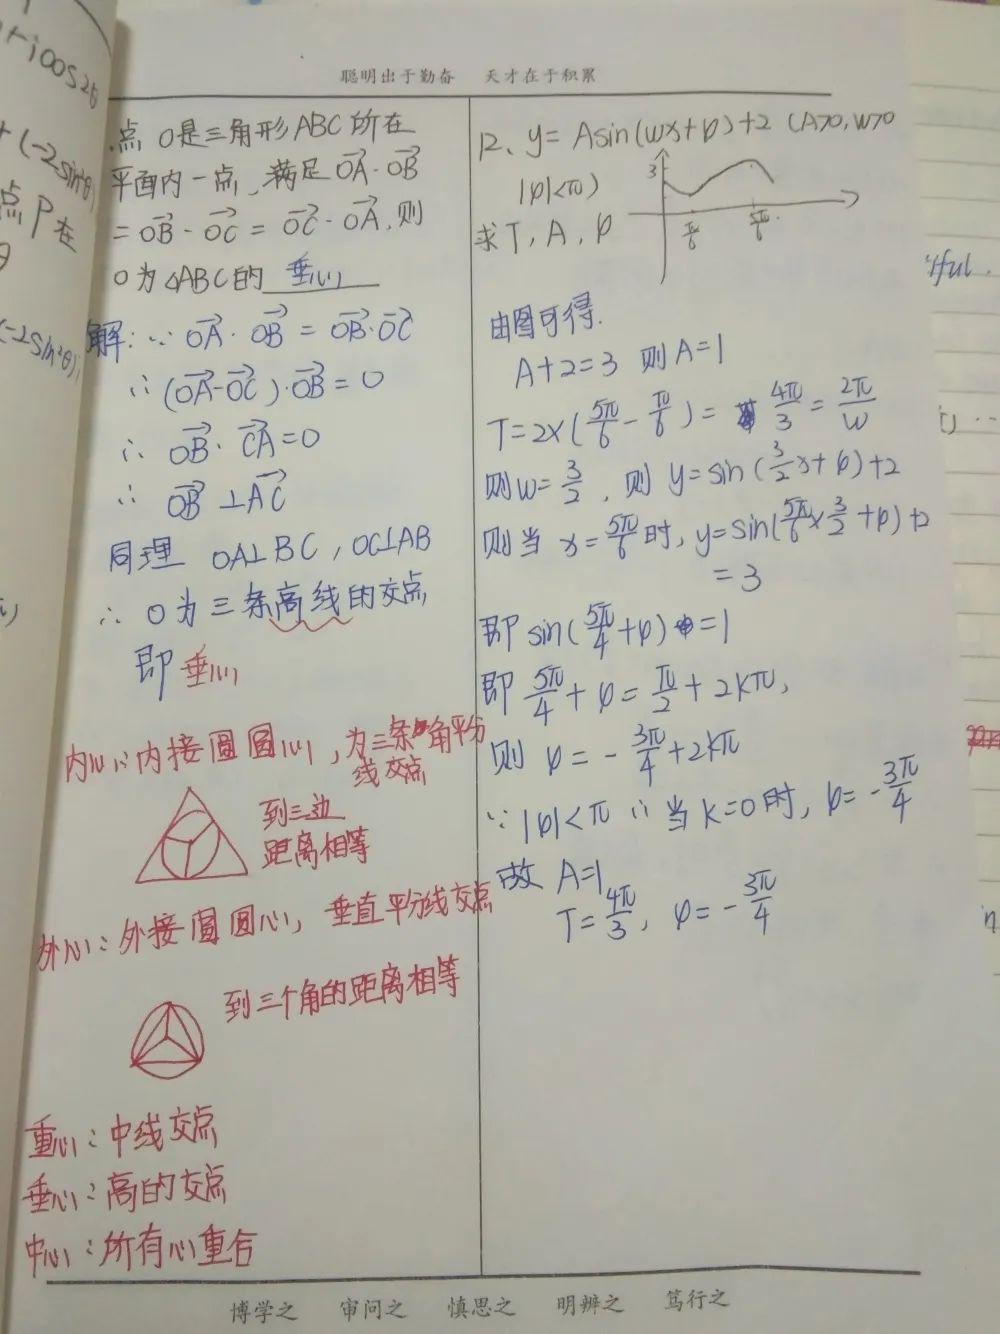 聪明出于勤奋 天才在于积累
点O是三角形ABC所在
平面内一点,满足OA→·OB→
=OB→·OC→=OC→·OA→,则
O为△ABC的 垂心
解:∵OA→·OB→=OB→·OC→
∴(OA→-OC→)·OB→=0
∴OB→·CA→=0
∴OB→⊥AC→
同理 OA⊥BC,OC⊥AB
∴O为三条高线的交点
即垂心
内心:内接圆圆心,为三条角平分
线交点
到三边
距离相等
外心:外接圆圆心,垂直平分线交点
到三个角的距离相等
重心:中线交点
垂心:高的交点
中心:所有心重合
12、y=Asin(wx+φ)+2 (A>0,w>0
|φ|<π)
求T,A,φ
3
π/6
5π/6
由图可得.
A+2=3 则A=1
T=2×(5π/6-π/6)= 4π/3=2π/w
则w=3/2,则y=sin(3/2x+φ)+2
则当x=5π/6时,y=sin(5π/6×3/2+φ)+2
=3
即sin(5π/4+φ)=1
即5π/4+φ=π/2+2kπ,
则φ=-3π/4+2kπ
∵|φ|<π ∴当k=0时,φ=-3π/4
故 A=1
T=4π/3,φ=-3π/4
博学之 审问之 慎思之 明辨之 笃行之
+icos2θ
+(-2sin²θ)
点P在
(-2sin²θ);